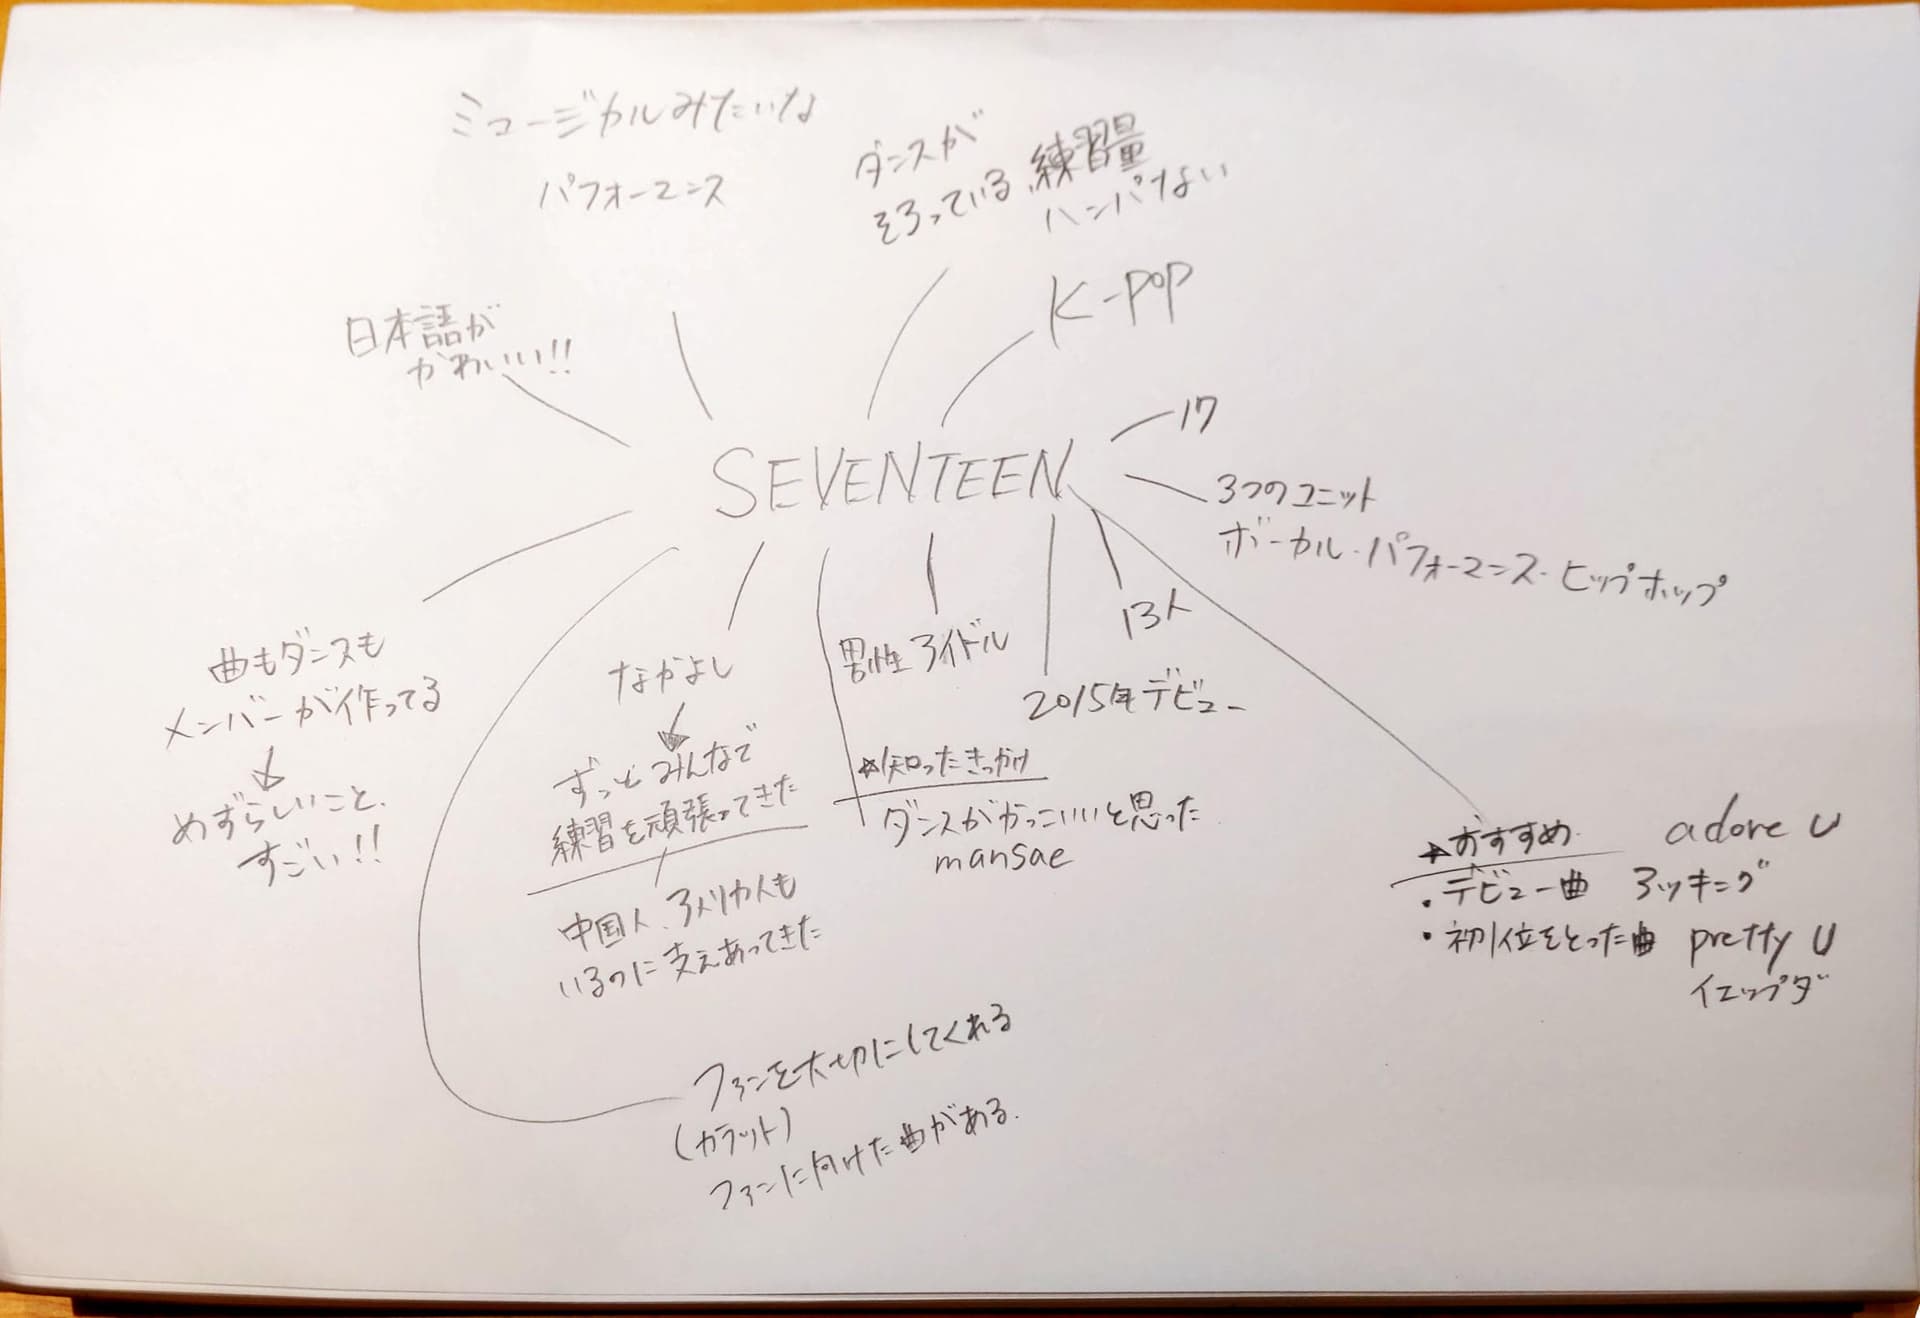 ミュージカルみたいな
パフォーマンス
ダンスが
そろっている、練習量
ハンパない
K-POP
日本語が
かわいい!!
17
SEVENTEEN
3つのユニット
ボーカル・パフォーマンス・ヒップホップ
13人
男性アイドル
2015年デビュー
曲もダンスも
メンバーが作ってる
めずらしいこと、
すごい!!
なかよし
ずっとみんなで
練習を頑張ってきた
中国人、アメリカ人も
いるのに支えあってきた
☆知ったきっかけ
ダンスがかっこいいと思った
mansae
★おすすめ
・デビュー曲 アッキング adore U
・初1位をとった曲 pretty U
イエップダ
ファンを大切にしてくれる
(カラット)
ファンに向けた曲がある。